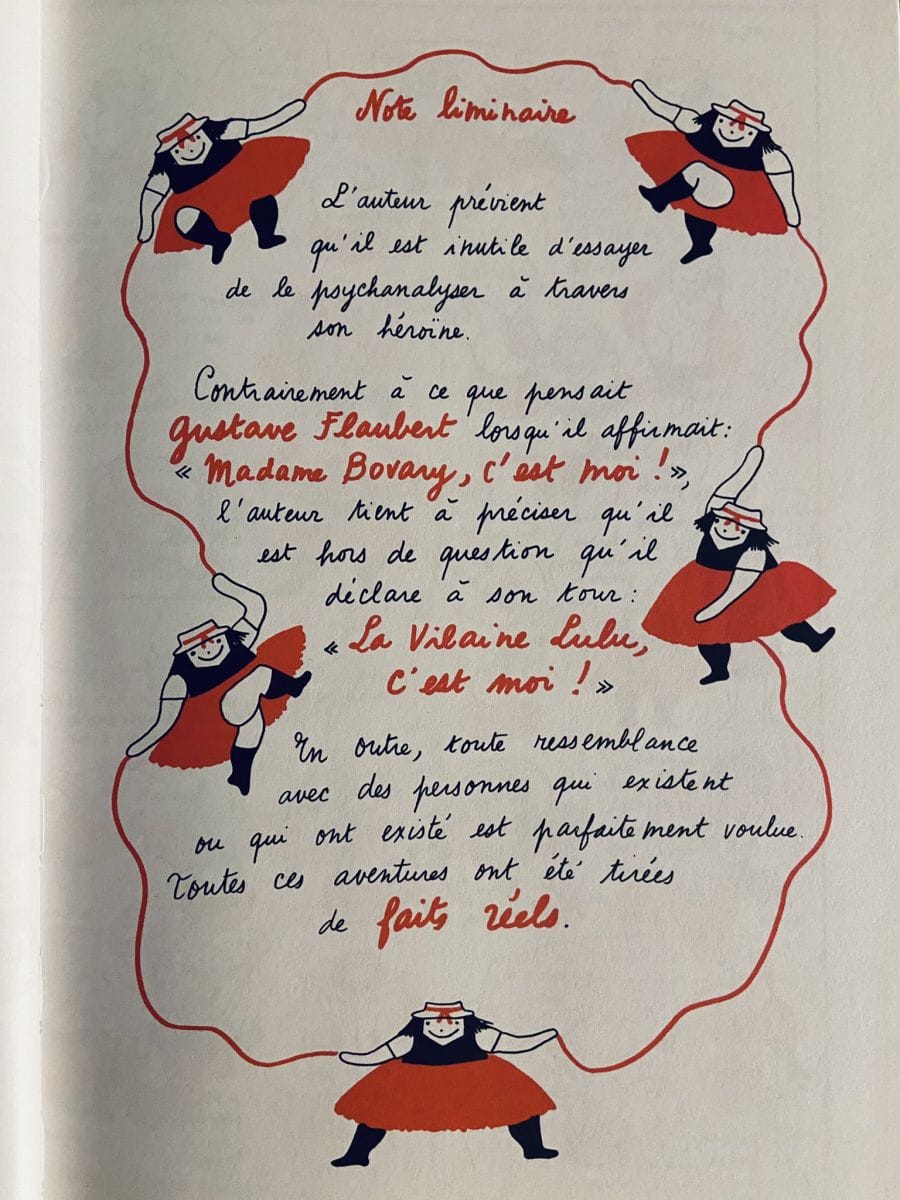 Note liminaire
L'auteur prévient
qu'il est inutile d'essayer
de le psychanalyser à travers
son héroïne.
Contrairement à ce que pensait
Gustave Flaubert lorsqu'il affirmait:
« Madame Bovary, c'est moi ! »,
l'auteur tient à préciser qu'il
est hors de question qu'il
déclare à son tour:
« La Vilaine Lulu,
c'est moi ! »
En outre, toute ressemblance
avec des personnes qui existent
ou qui ont existé est parfaitement voulue.
Toutes ces aventures ont été tirées
de faits réels.